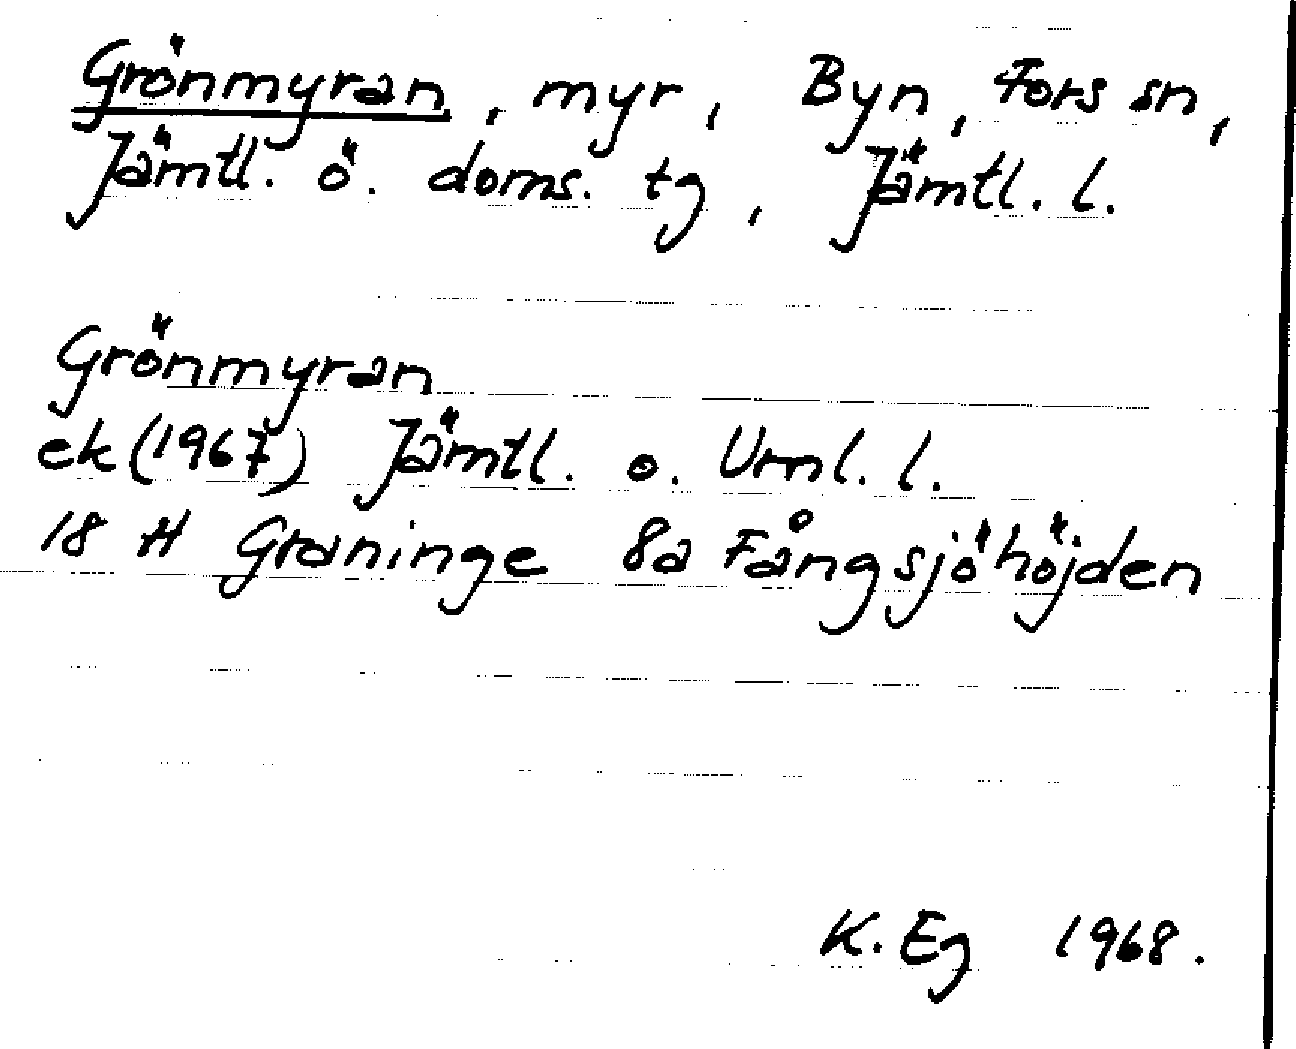 Grönmyran, myr, Byn, Fors sn,
Jämtl. ö. doms. tg, Jämtl. l.
Grönmyran
ek (1967) Jämtl. o. Uml. l.
18 H Graninge 8a Fångsjöhöjden
K. Eg 1968.